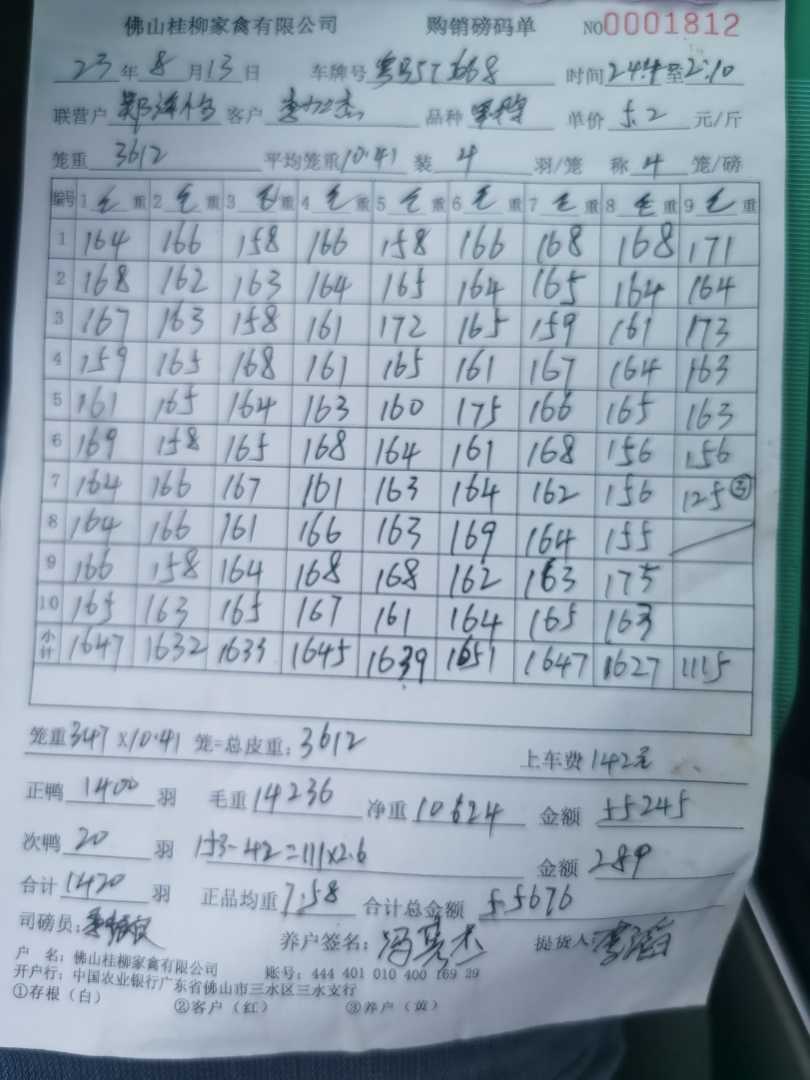 佛山桂柳家禽有限公司 购销磅码单 NO0001812
23年8月13日 车牌号 时间 至2:10
联营户 客户 品种 单价5.2元/斤
笼重3612 平均笼重10.41 装4羽/笼 称4笼/磅
编号 1毛重 2毛重 3毛重 4毛重 5毛重 6毛重 7毛重 8毛重 9毛重
1 164 166 158 166 158 166 168 168 171
2 168 162 163 164 165 164 165 164 164
3 167 163 158 161 172 165 159 161 173
4 159 165 168 161 165 161 167 164 163
5 161 165 164 163 160 175 166 165 163
6 169 158 165 168 164 161 168 156 156
7 164 166 167 161 163 164 162 156 125③
8 164 166 161 166 163 169 164 155
9 166 158 164 168 168 162 163 175
10 165 163 165 167 161 164 165 163
小计 1647 1632 1633 1645 1639 1651 1647 1627 1115
笼重347×10.41笼=总皮重:3612 上车费142元
正鸭1400羽 毛重14236 净重10624 金额55245
次鸭20羽 153-42=111×2.6 金额289
合计1420羽 正品均重7.58 合计总金额55676
司磅员: 养户签名:冯 杰 提货人
户 名:佛山桂柳家禽有限公司 账号:444 401 010 400 169 29
开户行:中国农业银行广东省佛山市三水区三水支行
①存根(白) ②客户(红) ③养户(黄)